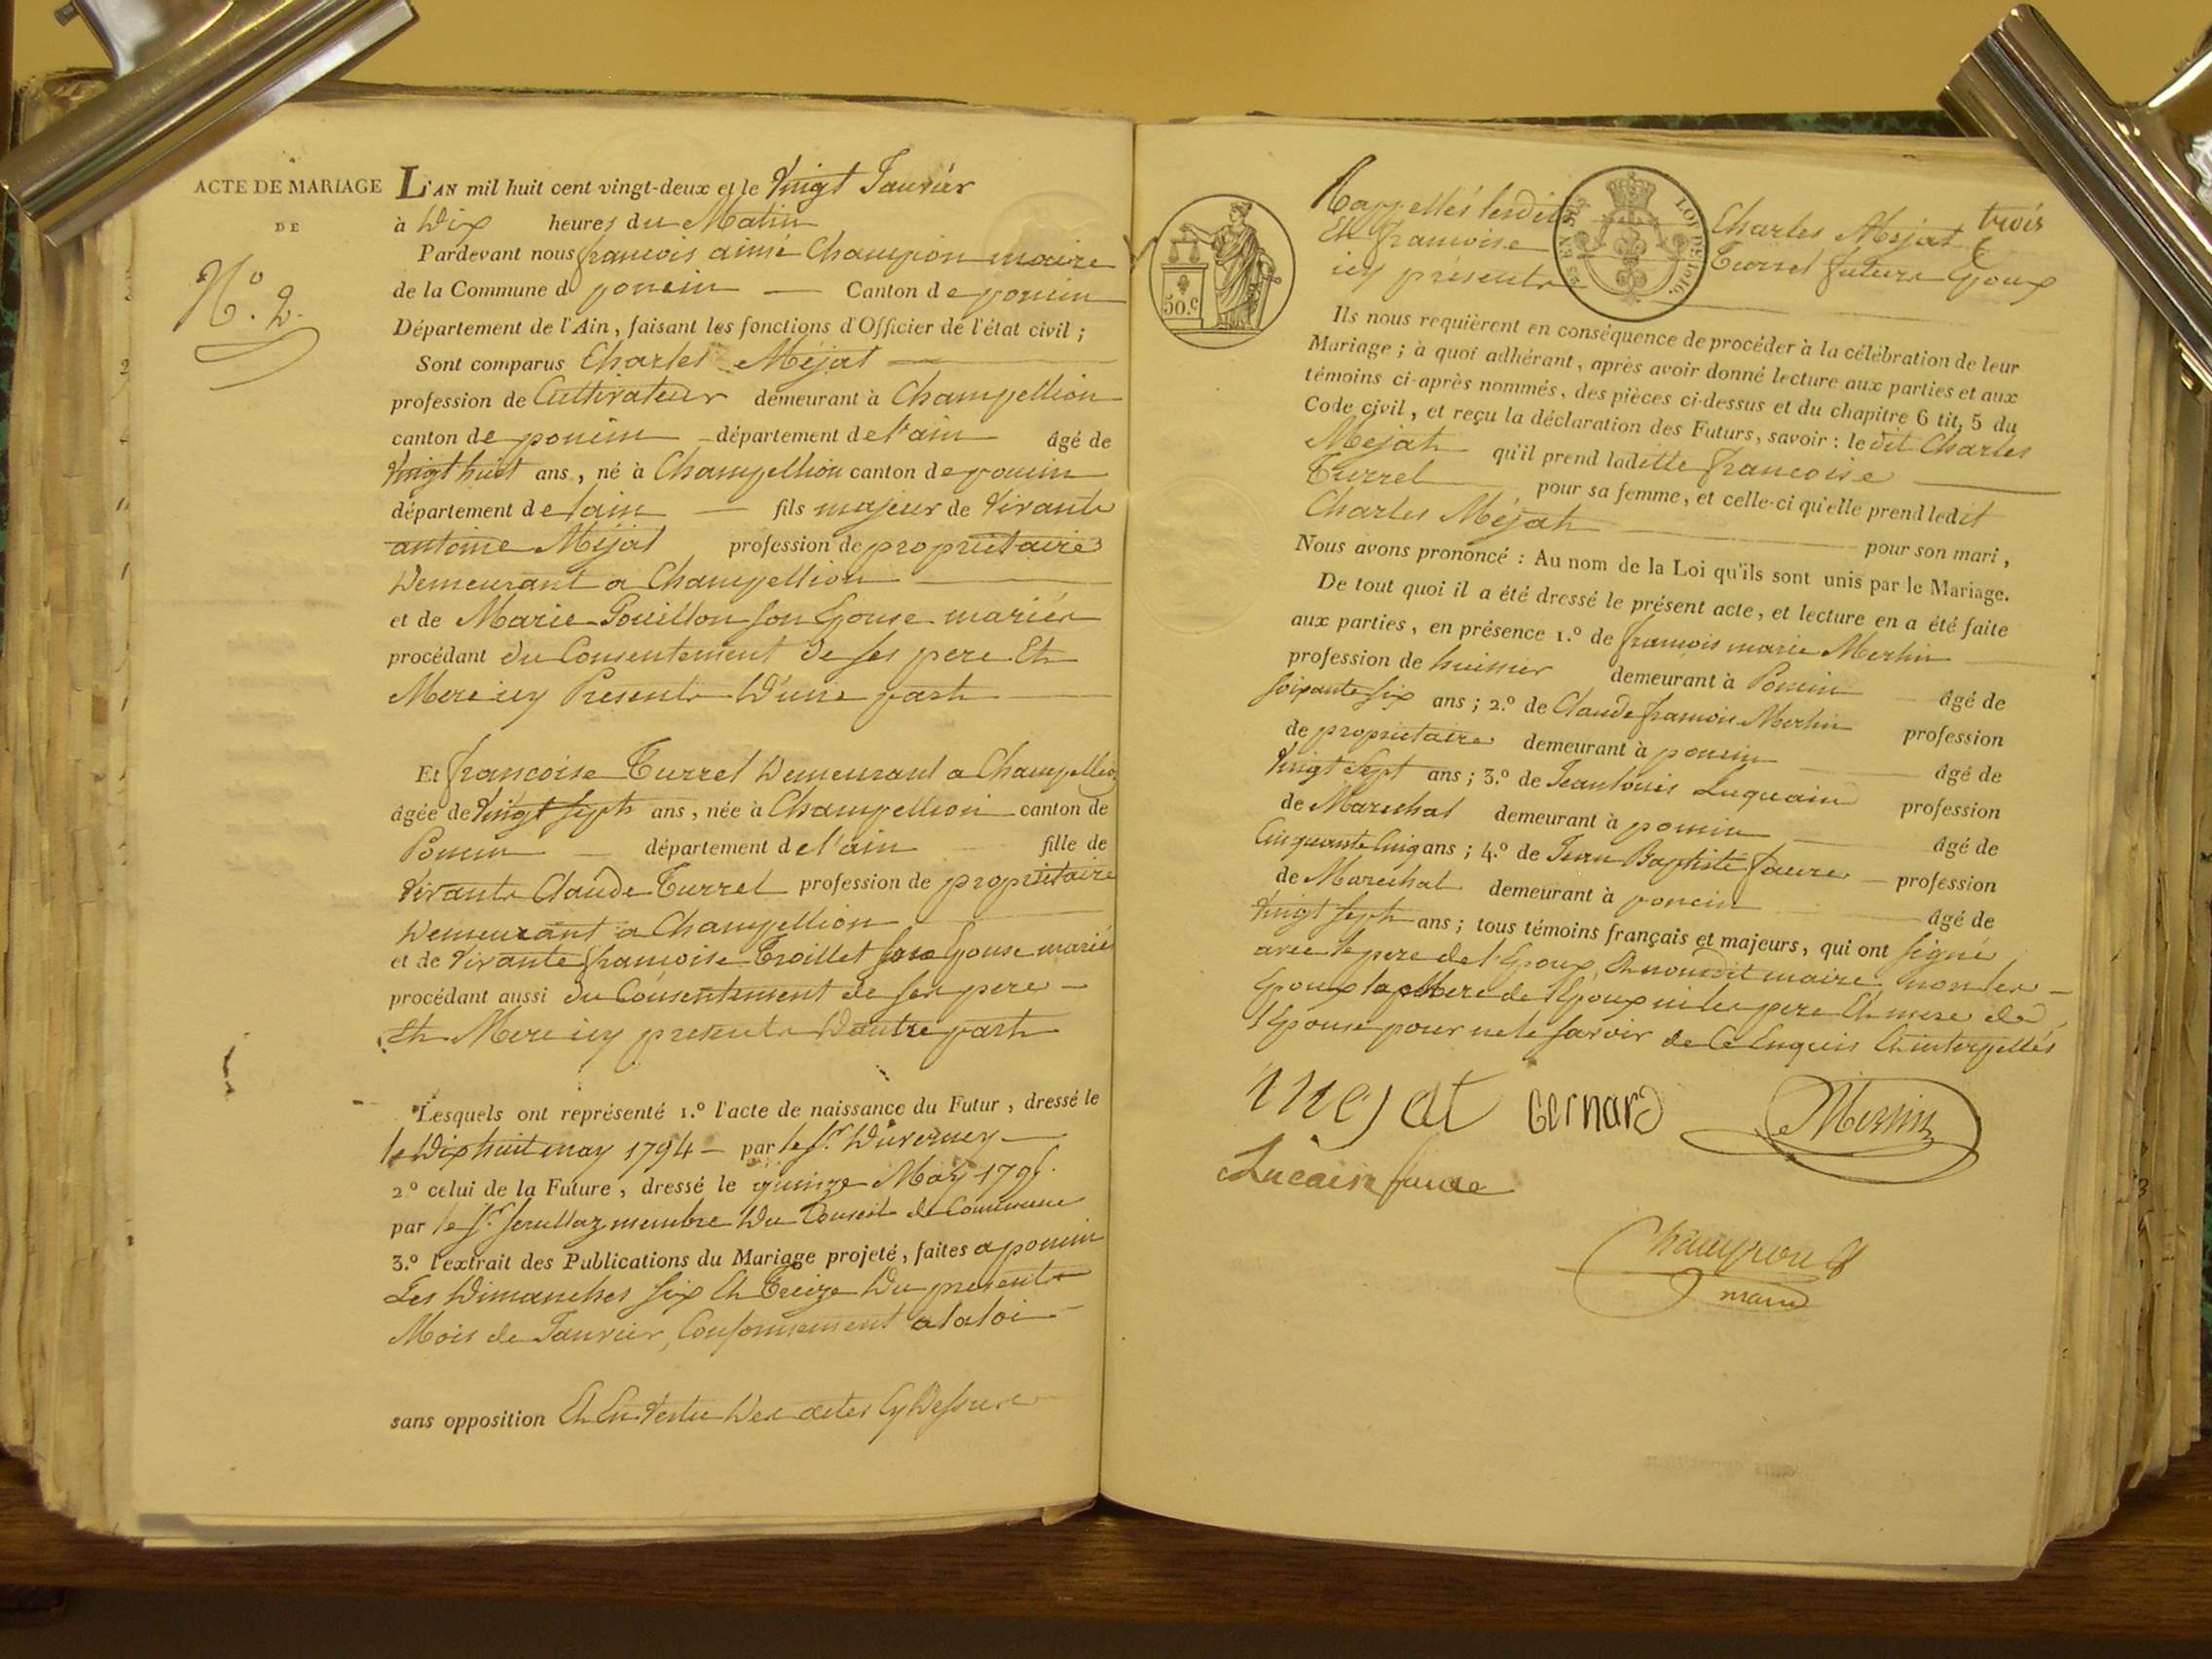 ACTE DE MARIAGE
DE
N.o 2.
L'AN mil huit cent vingt-deux et le Vingt Janvier
à Dix heures du Matin
Pardevant nous francois aimé Champion maire
de la Commune d poncin — Canton de poncin
Département de l'Ain, faisant les fonctions d'Officier de l'état civil ;
Sont comparus Charles Méjat
profession de Cultivateur demeurant à Champellion
canton de poncin département de l'ain âgé de
Vingt huit ans, né à Champellion canton de poncin
département de l'ain — fils majeur de Vivants
antoine Méjat profession de propriétaire
Demeurant a Champellion
et de Marie Pouillon son Epouse mariés
procédant du Consentement de ses pere Et
Mere icy Présents D'une part
Et francoise Turrel Demeurant a Champellion
âgée de Vingt sept ans, née à Champellion canton de
Poncin — département de l'ain fille de
Vivants Claude Turrel profession de propriétaire
Demeurant a Champellion
et de Vivante francoise Troillet son Epouse mariés
procédant aussi du Consentement de ses pere
Et Mere icy presents D'autre part
Lesquels ont représenté 1.o l'acte de naissance du Futur, dressé le
le Dix huit may 1794 — par le Sr. Duverney
2.o celui de la Future, dressé le quinze May 1795.
par le Sr. membre Du Conseil de Commune
3.o l'extrait des Publications du Mariage projeté, faites a poncin
Les Dimanches six Et Treize Du present
Mois de Janvier, Conformement a la loi
sans opposition Et En Vertu Des actes Cy Dessus
50.c
25 EN SUS
LOI DE 1816.
trois
Rappellés lesdits Charles Mejat
Et francoise Turrel future Epoux
icy présents
Ils nous requièrent en conséquence de procéder à la célébration de leur
Mariage ; à quoi adhérant, après avoir donné lecture aux parties et aux
témoins ci-après nommés, des pièces ci-dessus et du chapitre 6 tit. 5 du
Code civil, et reçu la déclaration des Futurs, savoir : le dit Charles
Mejat qu'il prend laditte francoise
Turrel pour sa femme, et celle-ci qu'elle prend ledit
Charles Méjat pour son mari,
Nous avons prononcé : Au nom de la Loi qu'ils sont unis par le Mariage.
De tout quoi il a été dressé le présent acte, et lecture en a été faite
aux parties, en présence 1.o de francois marie Merlin
profession de huissier demeurant à Poncin âgé de
soixante six ans ; 2.o de Claude francois Merlin profession
de propriétaire demeurant à poncin âgé de
Vingt Sept ans ; 3.o de Jean louis Luquain profession
de Marechal demeurant à poncin âgé de
Cinquante Cinq ans ; 4.o de Jean Baptiste faure profession
de Marechal demeurant à poncin âgé de
Vingt sept ans ; tous témoins français et majeurs, qui ont signé
avec le pere de l'Epoux, Et nous dit maire non les
Epoux la Mere de l'Epoux ni les pere Et mere de
l'Epouse pour ne le savoir de Ce Enquis Et interpellés
mejat Merlin
Lucain faure
Champion
maire